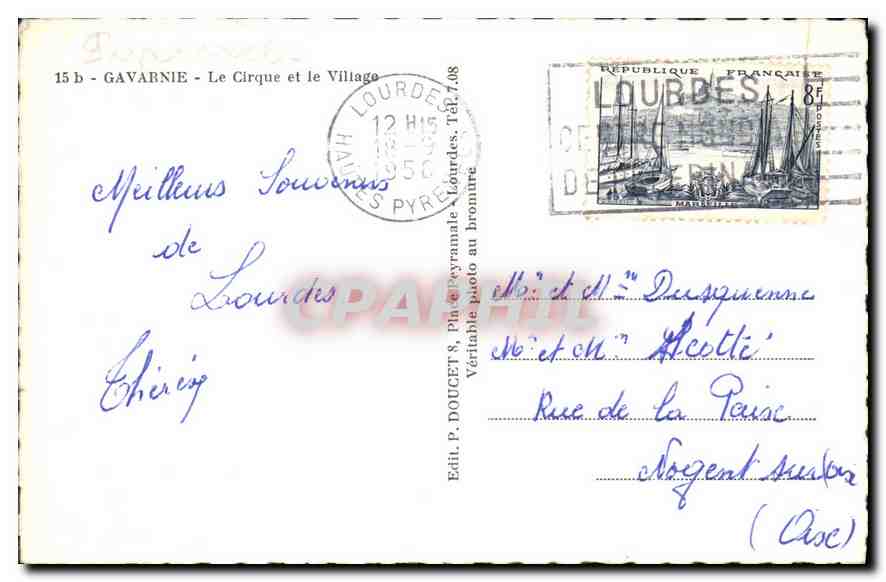 15 b - GAVARNIE - Le Cirque et le Village
LOURDES
12 H15
1956
HAUTES PYRENEES
RÉPUBLIQUE FRANÇAISE
8F
POSTES
MARSEILLE
LOURDES
Meilleurs Souvenirs
de
Lourdes
Thérèse
Edit. P. DOUCET 8, Place Peyramale - Lourdes. Tél. 7.08
Véritable photo au bromure
CPAPHIL
Mr et Mme Dusquenne
Mr et Mme Acotté
Rue de la Paix
Nogent sur Oise
(Oise)